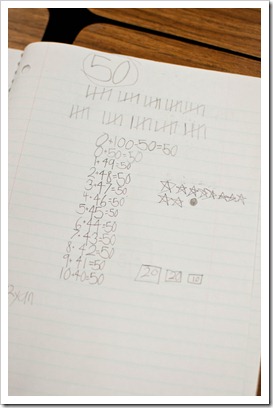 50
0+100-50=50
0+50=50
1+49=50
2+48=50
3+47=50
4+46=50
5+45=50
6+44=50
7+43=50
8+42=50
9+41=50
10+40=50
20 20 10